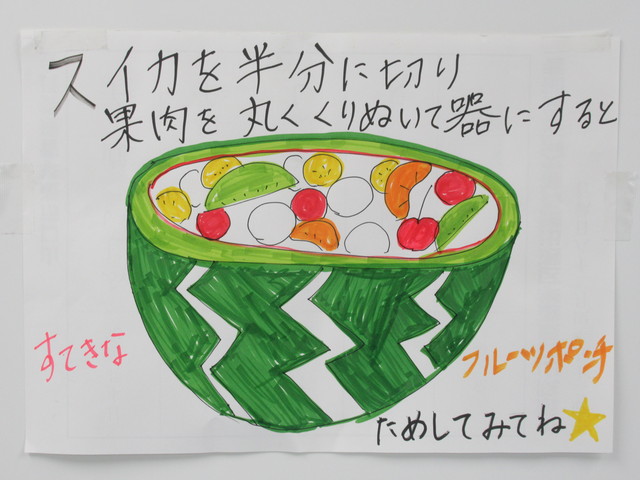 スイカを半分に切り
果肉を丸くくりぬいて器にすると
すてきな
フルーツポンチ
ためしてみてね